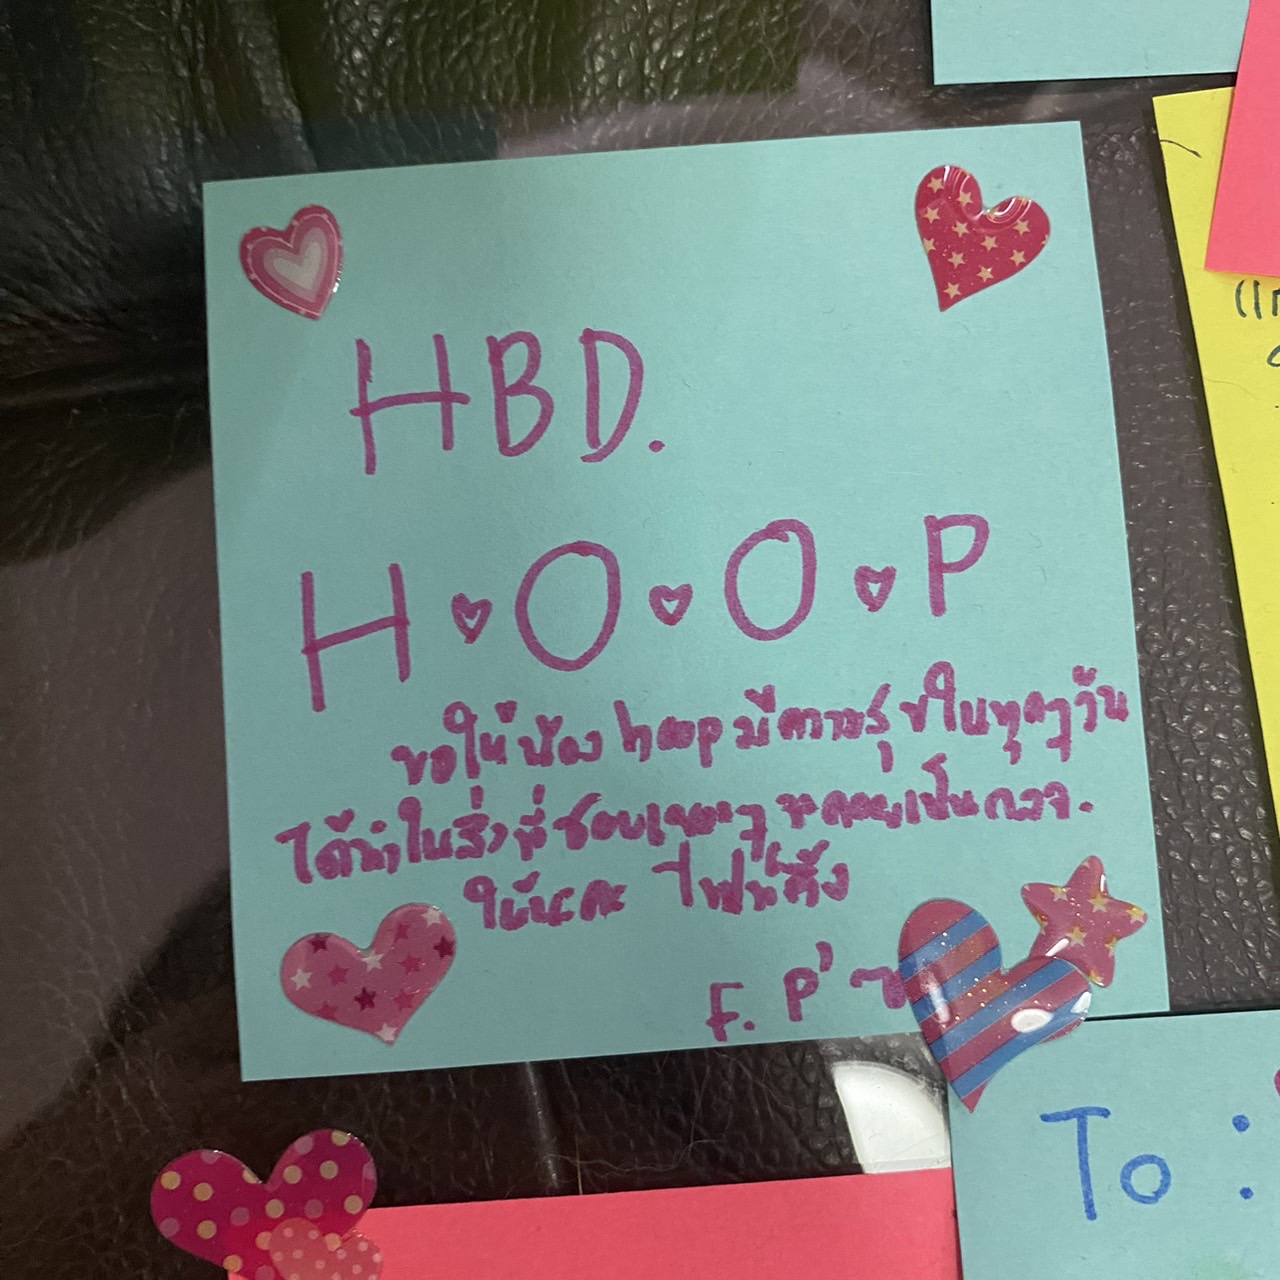 HBD.
H♡O♡O♡P
ขอให้น้อง hoop มีความสุขในทุกๆวัน
ได้ทำในสิ่งที่ชอบเยอะๆ จะคอยเป็นกลจ.
ให้นะคะ ไฟท์ติ้ง
F. P'
To :